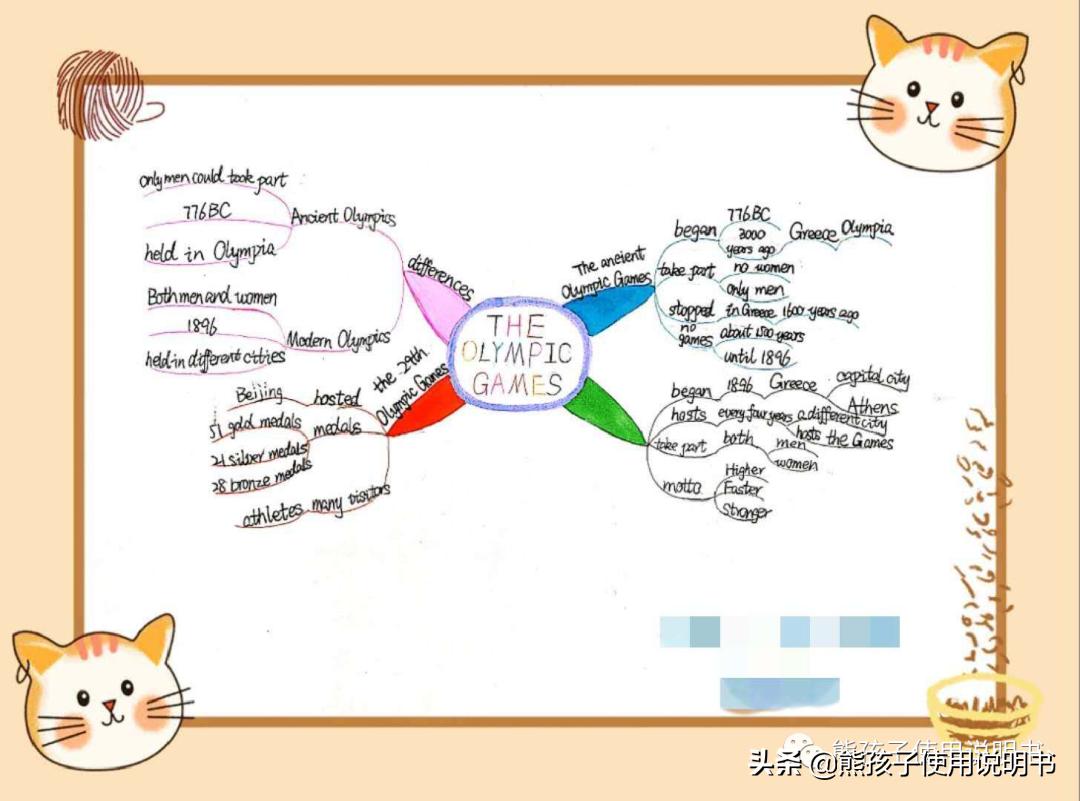 THE
OLYMPIC
GAMES
differences
Ancient Olympics
only men could took part
776BC
held in Olympia
Modern Olympics
Both men and women
1896
held in different citities
The ancient
Olympic Games
began
776BC
3000
years ago
Greece
Olympia
take part
no women
only men
stopped
in Greece 1600 years ago
no
games
about 1500 years
until 1896
the 29th
Olympic Games
hosted
Beijing
medals
51 gold medals
21 silver medals
28 bronze medals
athletes many visitors
began
1896
Greece
capital city
Athens
hosts
every four years
a different city
hosts the Games
take part
both
men
women
motto
Higher
Faster
Stronger
熊孩子使用说明书
头条 @熊孩子使用说明书